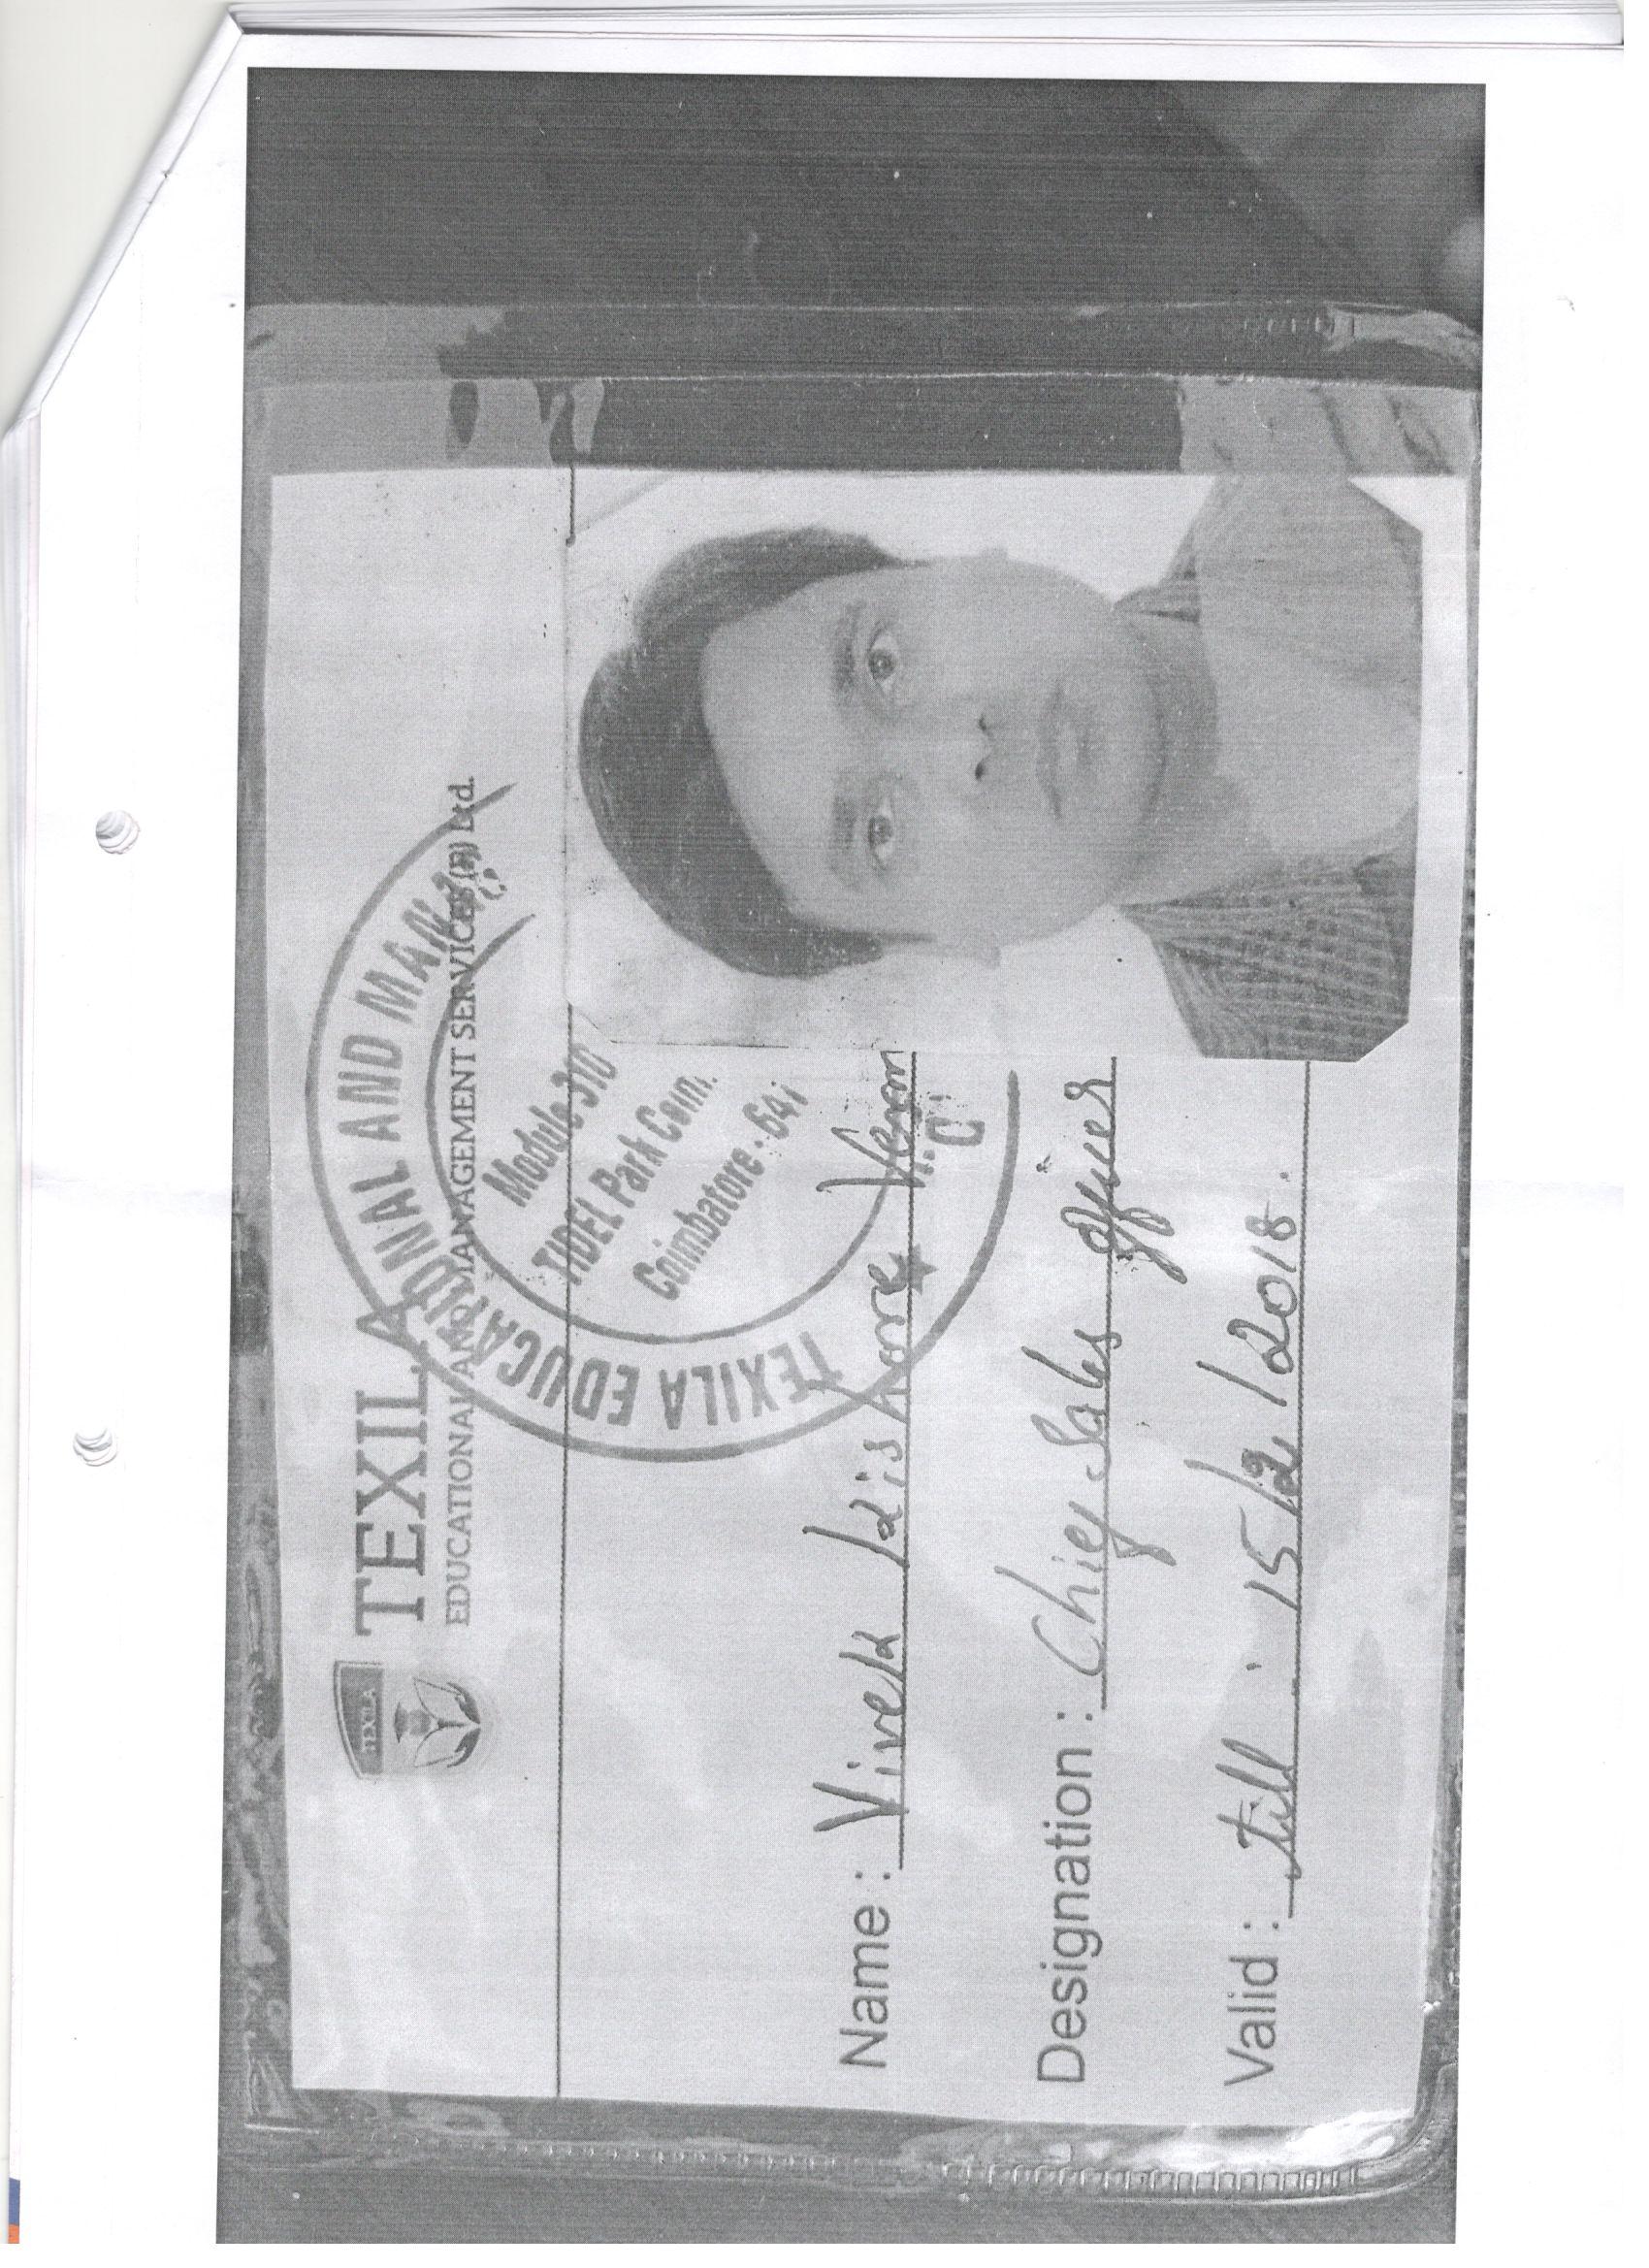 TEXILA
TEXILA
EDUCATIONAL AND MANAGEMENT SERVICES (P) Ltd.
TEXILA EDUCATIONAL AND MAN
Module 310
TIDEL Park Coim.
Coimbatore - 641
Name : Vivek Kishore
Designation : Chief Sales officer
Valid : till 15/2/2018.